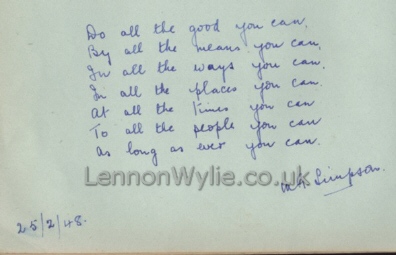 Do all the good you can,
By all the means you can,
In all the ways you can,
In all the places you can
At all the times you can
To all the people you can
As long as ever you can.
LennonWylie.co.uk
Simpson.
25/2/48.